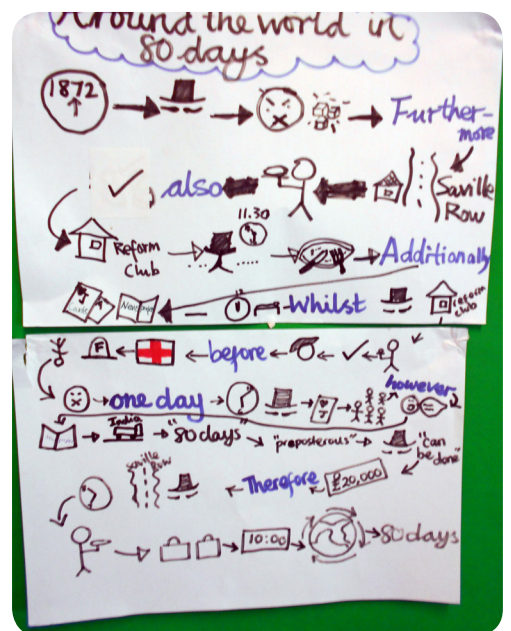 Around the world in
80 days
1872
Further-
more
also
Saville
Row
11.30
Reform
Club
Additionally
Whilst
reform
club
before
one day
however
India
"80 days"
"preposterous"
"can
be done"
Saville
Row
Therefore
£20,000
10:00
80 days